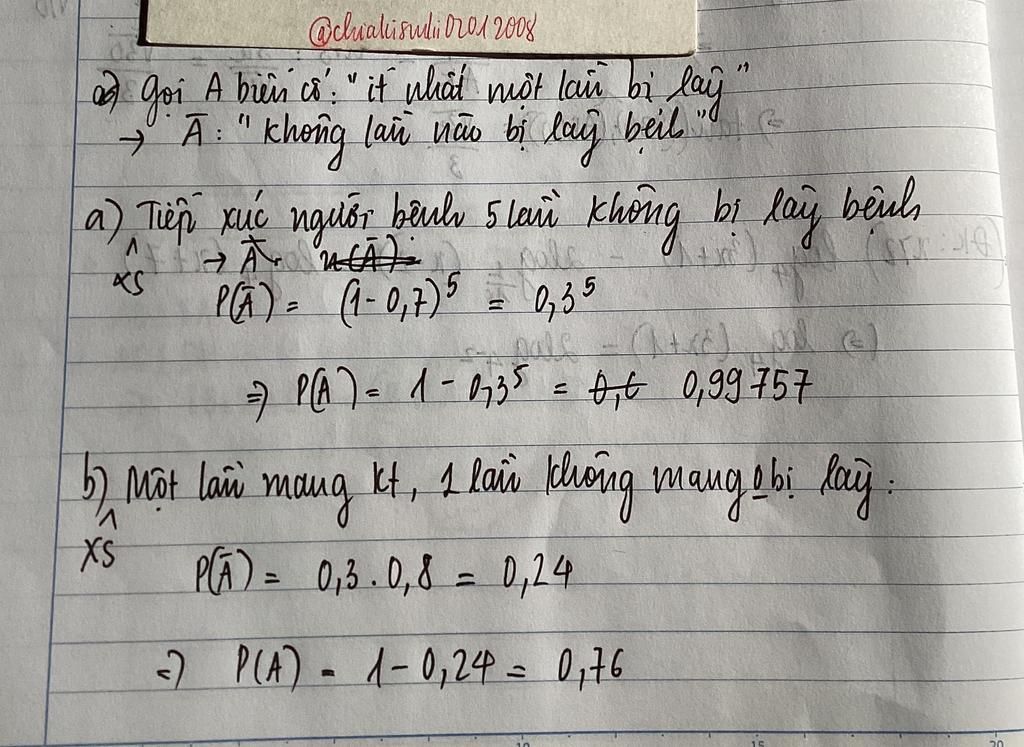 @chiakisulii02012008
a) gọi A biến cố: "ít nhất một lần bị lây"
→ Ā : "không lần nào bị lây bệnh"
a) Tiếp xúc người bệnh 5 lần không bị lây bệnh
XS → Ā n(Ā) =
P(Ā) = (1 - 0,7)⁵ = 0,3⁵
⇒ P(A) = 1 - 0,3⁵ = 0,6 0,99757
b) Một lần mang kt, 1 lần không mang 0 bị lây :
XS
P(Ā) = 0,3 . 0,8 = 0,24
⇒ P(A) = 1 - 0,24 = 0,76
10 15 20